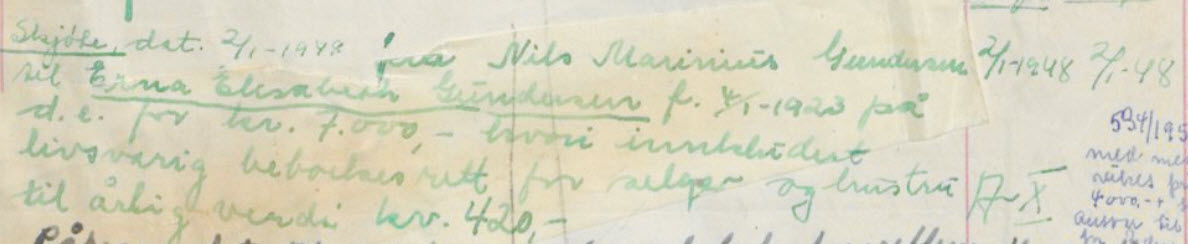 Skjöte, dat. 2/1-1948 fra Nils Marinius Gundersen 2/1-1948 2/1-48
til Erna Elisabeth Gundersen f. 4/1-1923 på
d.e. for kr. 7.000,- hvori innbefattet
livsvarig beboelsesrett for selger og hustru A-X.
til årlig verdi kr. 420,-
594/195
med
4000,-
til